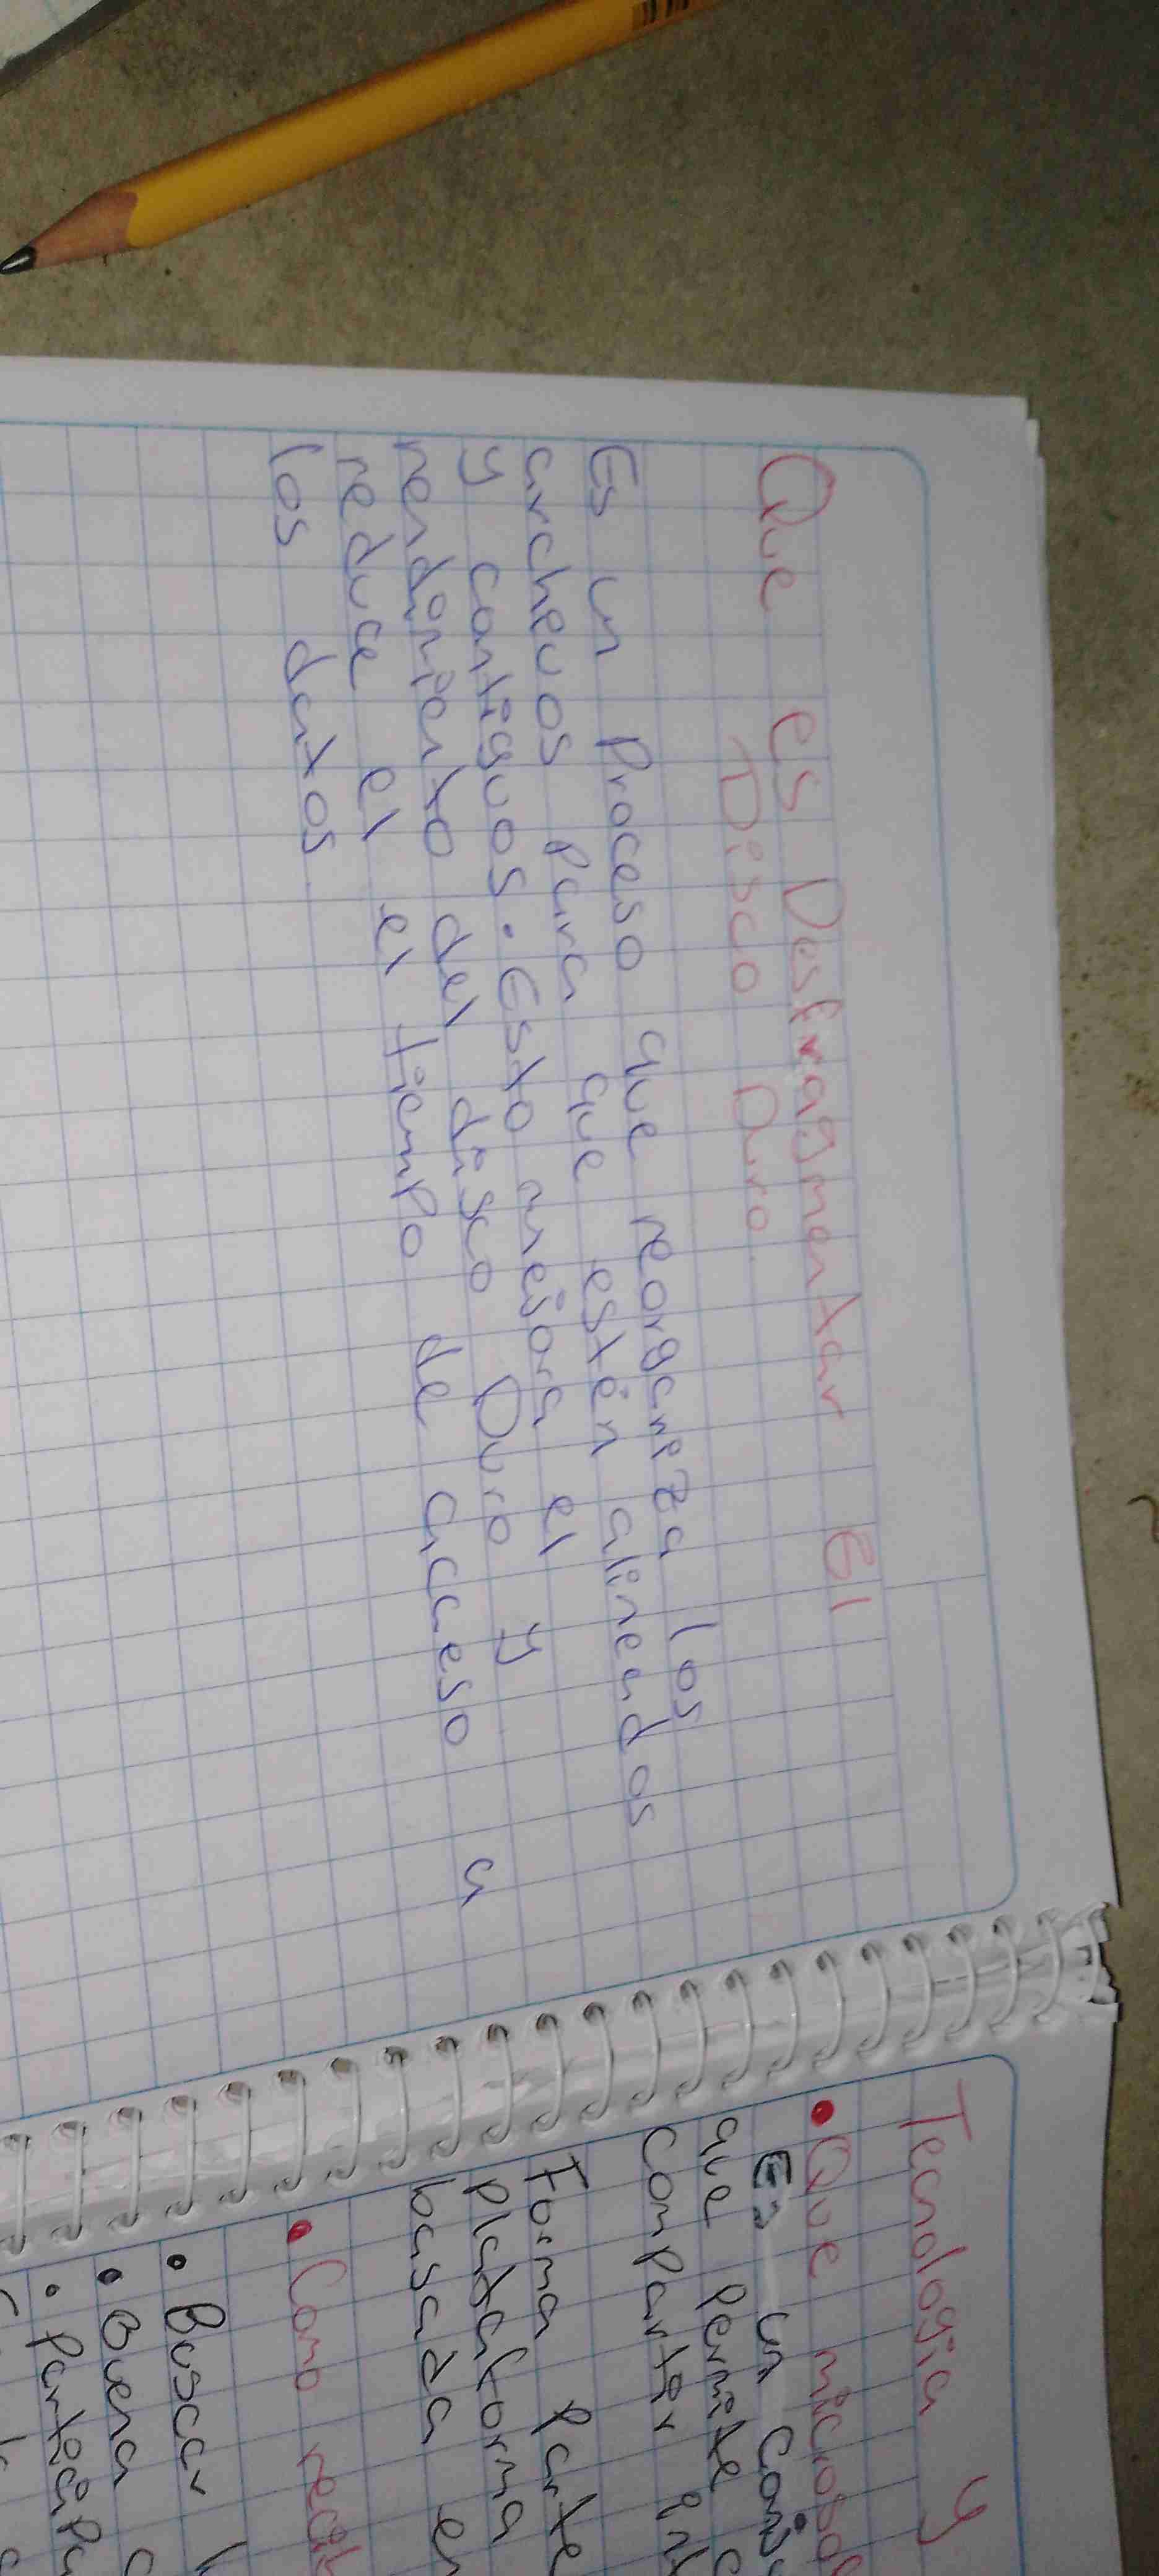 Que es Desfragmentar El
Disco Duro.
Es un Proceso que reorganiza los
archevos para que estén alineados
y contiguos. Esto mejora el
rendimiento del disco Duro y
reduce el el tiempo de acceso a
los datos.
Tecnologia y
• Que
Es un
que permite
compartir
Forma parte
plataforma
basada en
• Como
• Buscar
• Buena
•